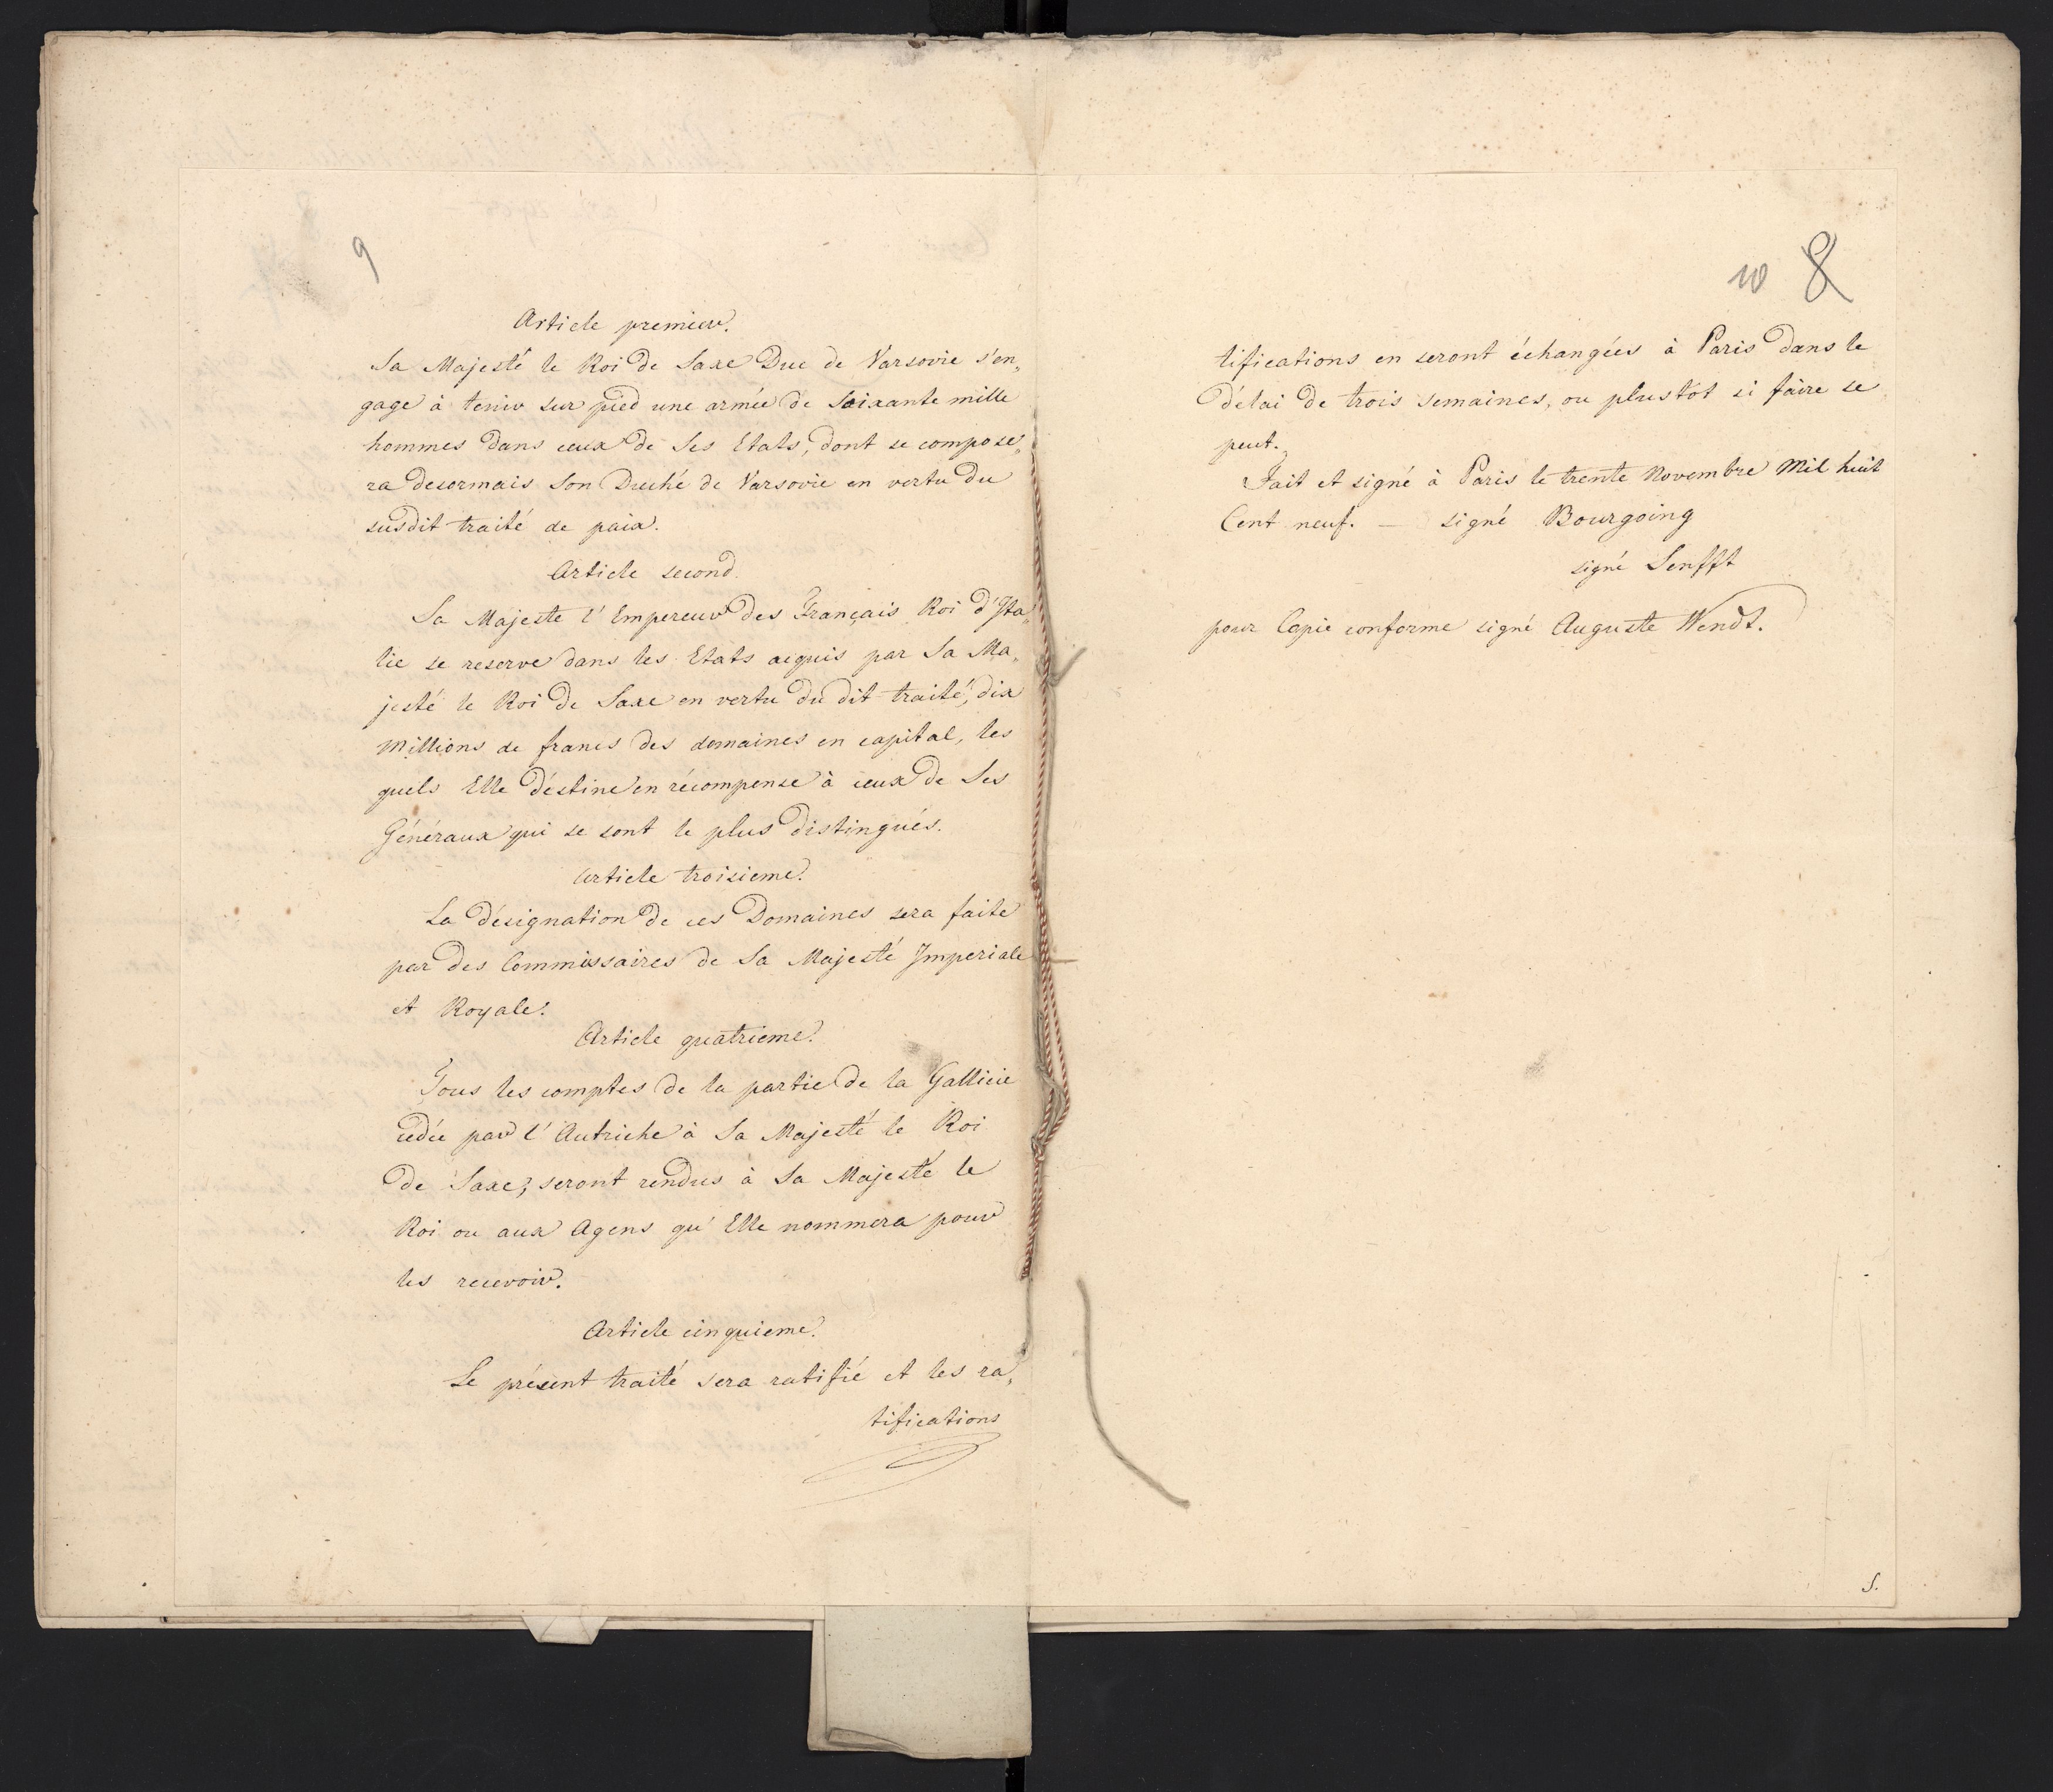 9
Article premier.
Sa Majesté le Roi de Saxe Duc de Varsovie s'en„
gage à tenir sur pied une armée de Soixante mille
hommes dans ceux de Ses Etats, dont se compose„
ra desormais Son Duché de Varsovie en vertu du
susdit traité de paix.
Article second.
Sa Majeste l'Empereur des Français Roi d'Ita„
lie se reserve dans les Etats acquis par Sa Ma„
jesté le Roi de Saxe en vertu du dit traité, dix
Millions de francs des domaines en capital, les
quels Elle déstine en récompense à ceux de Ses
Généraux qui se sont le plus distingués.
Article troisieme.
La désignation de ces Domaines sera faite
par des Commissaires de Sa Majesté Imperiale
et Royale.
Article quatrieme.
Tous les comptes de la partie de la Gallicie
cédée par l'Autriche à Sa Majesté le Roi
de Saxe, seront rendus à Sa Majesté le
Roi ou aux Agens qu'Elle nommera pour
les recevoir.
Article cinquieme.
Le présent traité sera ratifié et les ra„
tifications
10 8
tifications en seront échangées à Paris dans le
délai de trois semaines, ou plustôt si faire se
peut.
Fait et signé à Paris le trente Novembre Mil huit
Cent neuf. — signé Bourgoing
signé Senfft
pour Copie conforme signé Auguste Wendt.
5.